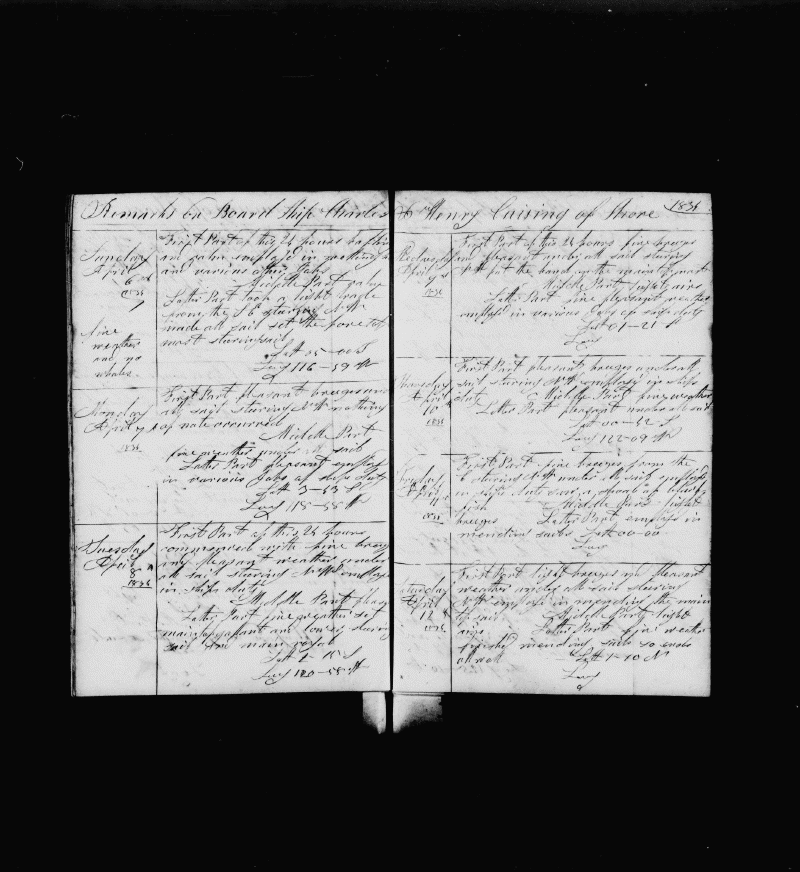 Remarks on Board Ship Charles & Henry Cruising of Shore 1834
Sunday
April
6
fine
weather
and no
whales
First Part of this 24 hours
and calm employed in
and various other Jobs
Middle Part calm
Latter Part took a light
from the SE staring NW
made all sail set the fore top
mast staring sail
Latt 05-00 S
Long 116-59 W
Monday
April 7
First Part pleasant breezes and
all sail staring NW nothing
of note occurred
Middle Part
fine weather under all sail
Latter Part pleasant employed
in various Jobs of ships duty
Latt 3-53 S
Long 118-58 W
Tuesday
April
8
First Part of this 24 hours
commenced with fine breezes
and pleasant weather under
all sail staring NW employed
in ships duty
Middle Part
Latter Part fine weather set
main and lower staring
sail and main royal
Latt 2-10 S
Long 120-58 W
Wednesday
April
9
First Part of this 24 hours fine breezes
and pleasant under all sail staring
NW put the band on the main
Middle Part light airs
Latter Part fine pleasant weather
employed in various Jobs of ships duty
Latt 01-21 S
Long
Thursday
April
10
First Part pleasant breezes under all
sail staring NW employed in ships
duty Middle Part fine weather
Latter Part pleasant under all sail
Latt 00-32 S
Long 122-09 W
Friday
April
11
First Part fine breezes from the
staring NW under all sail employed
in ships duty
fish Middle Part light
breezes Latter Part employed in
mending sails Latt 00-00
Long
Saturday
April
12
First Part light breezes and pleasant
weather under all sail staring
NW employed in mending the main
top sail Middle Part light
airs Latter Part fine weather
finished mending sails so ends
all well Latt 1-10 N
Long